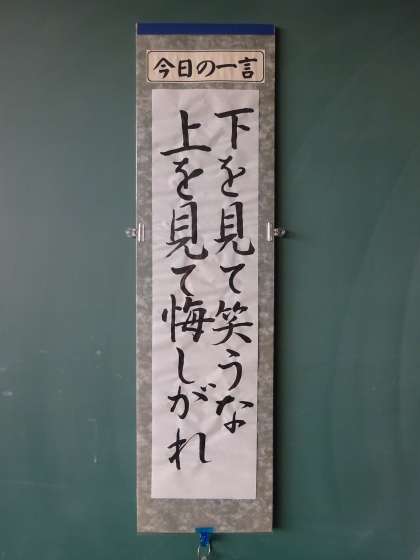 今日の一言
下を見て笑うな
上を見て悔しがれ